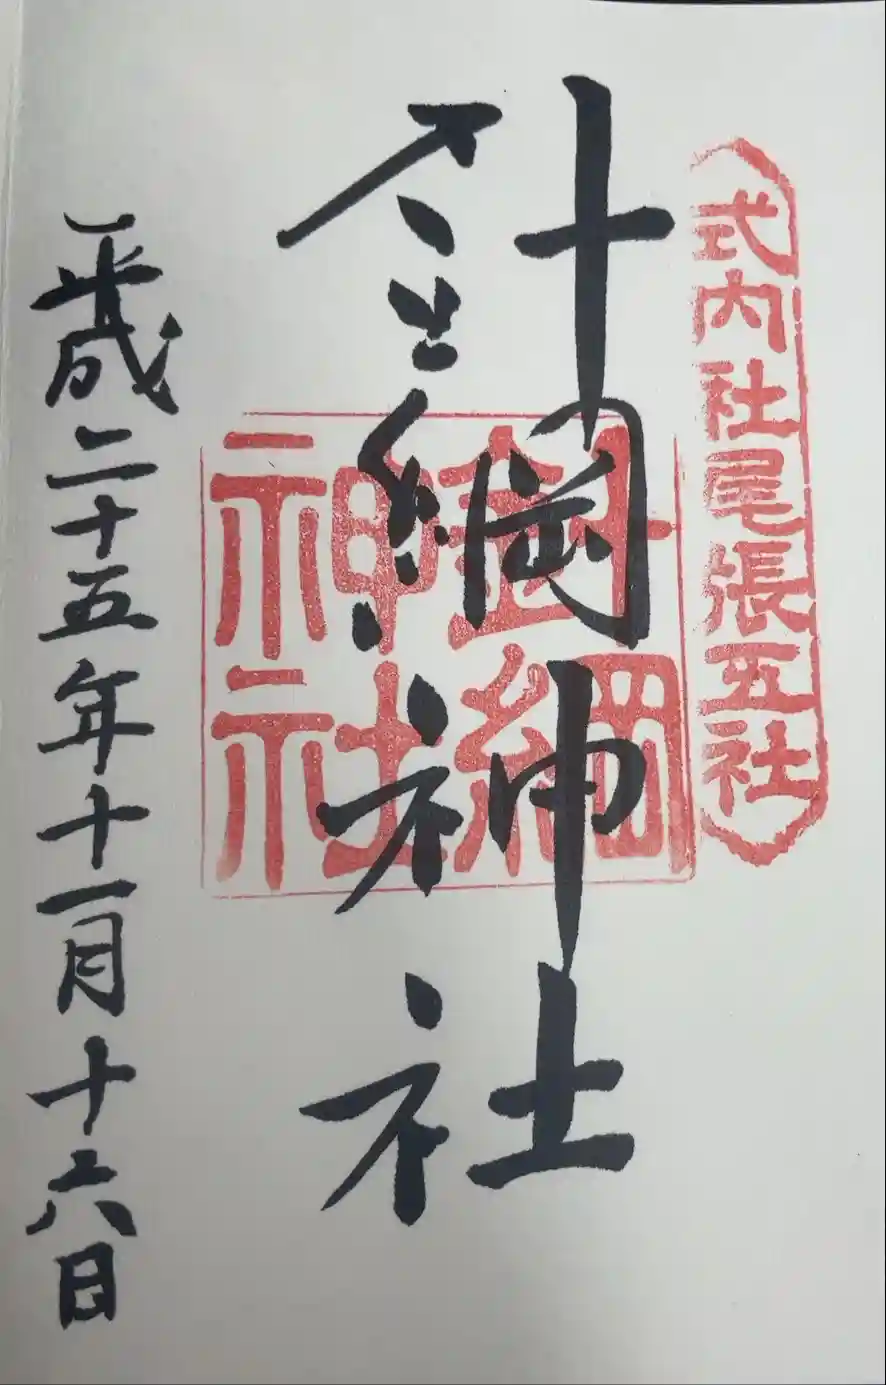 式内社尾張五社
針綱神社
針綱
神社
平成二十五年十一月十六日